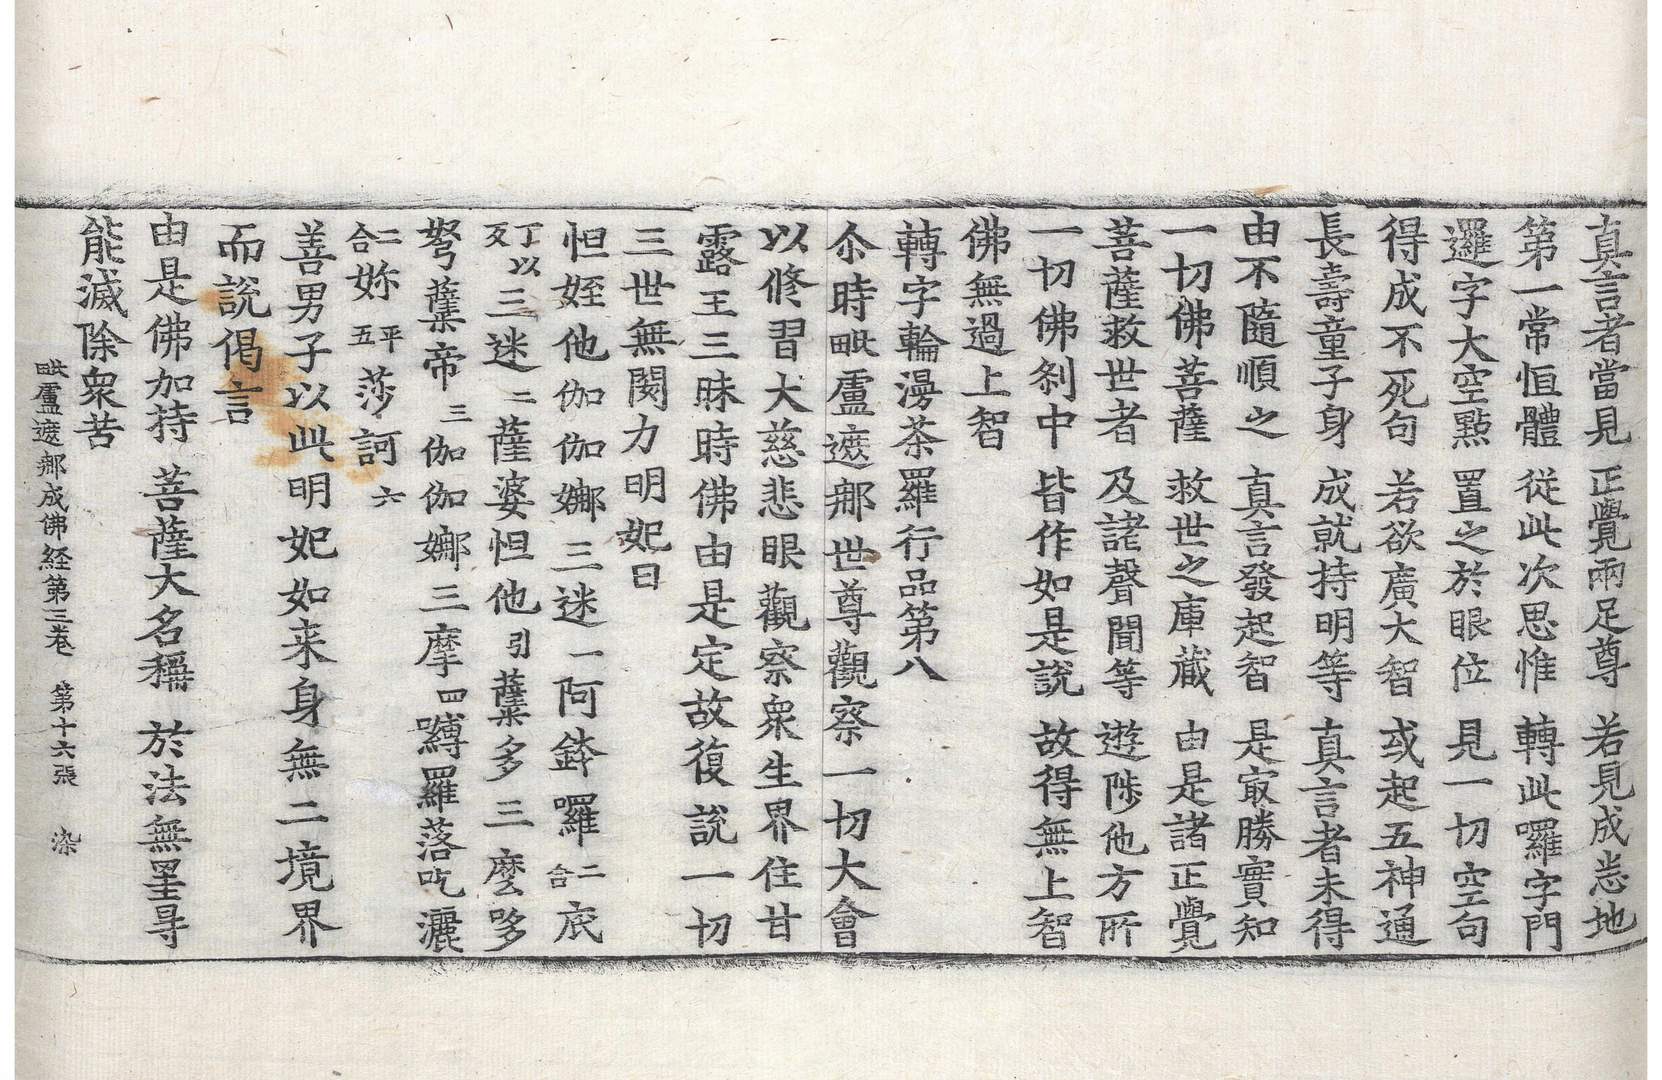 真言者當見 正覺兩足尊 若見成悉地
第一常恒體 從此次思惟 轉此囉字門
邏字大空點 置之於眼位 見一切空句
得成不死句 若欲廣大智 或起五神通
長壽童子身 成就持明等 真言者未得
由不隨順之 真言發起智 是㝡勝實知
一切佛菩薩 救世之庫藏 由是諸正覺
菩薩救世者 及諸聲聞等 遊陟他方所
一切佛刹中 皆作如是說 故得無上智
佛無過上智
轉字輪漫茶羅行品第八
尒時毗盧遮郍世尊觀察一切大會
以修習大慈悲眼觀察衆生界住甘
露王三昧時佛由是定故復說一切
三世無閡力明妃曰
怛姪他伽伽娜三迷一阿鉢囉二合底
丁以反三迷二薩婆怛他引蘖多三麼哆
弩蘖帝三伽伽娜三摩四嚩羅落吃灑
二合妳平五莎訶六
善男子以此明妃如来身無二境界
而說偈言
由是佛加持 菩薩大名稱 於法無罣㝵
能滅除衆苦
毗盧遮郍成佛経第三卷 第十六張 染